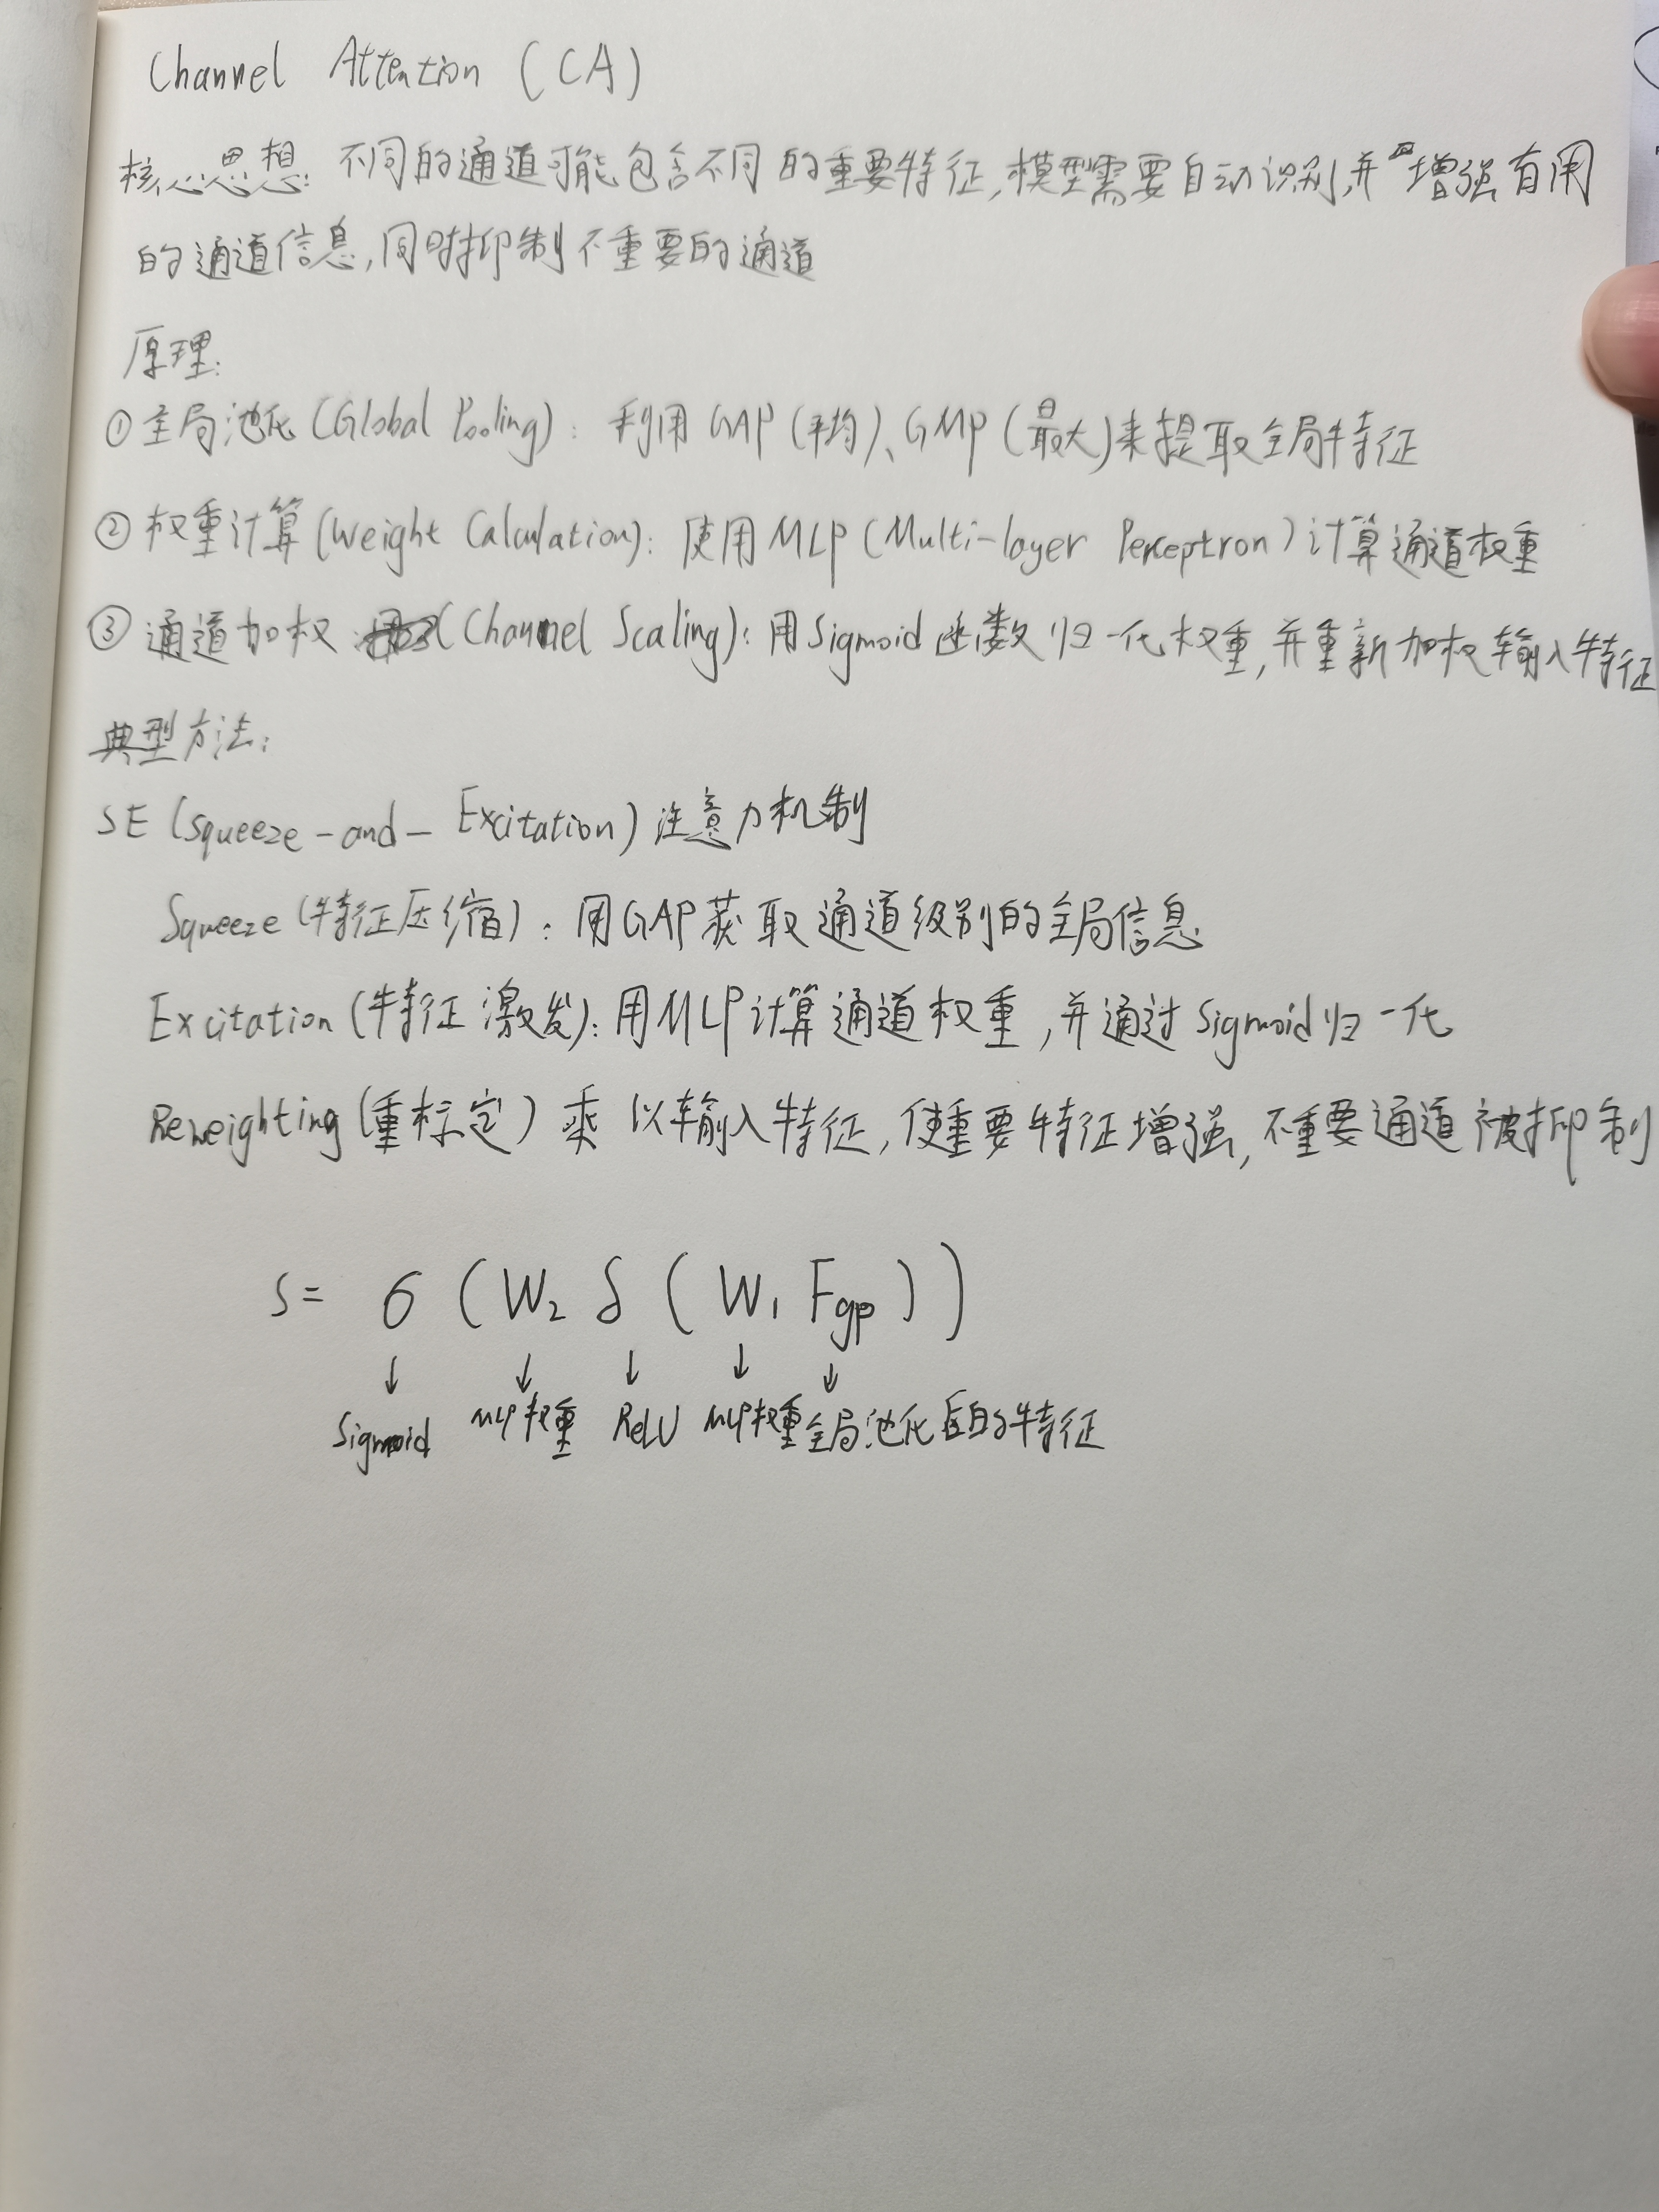 Channel Attention (CA)
核心思想: 不同的通道可能包含不同的重要特征,模型需要自动识别,并增强有用
的通道信息,同时抑制不重要的通道
原理:
①全局池化(Global Pooling): 利用GAP(平均)、GMP(最大)来提取全局特征
②权重计算(Weight Calculation): 使用MLP(Multi-layer Perceptron)计算通道权重
③通道加权(Channel Scaling): 用Sigmoid函数归一化权重,并重新加权输入特征
典型方法:
SE(Squeeze-and-Excitation)注意力机制
Squeeze(特征压缩): 用GAP获取通道级别的全局信息
Excitation(特征激发): 用MLP计算通道权重,并通过Sigmoid归一化
Reweighting(重标定)乘以输入特征,使重要特征增强,不重要通道被抑制
S= σ(W₂ δ(W₁ Fgp))
↓ ↓ ↓ ↓ ↓
Sigmoid MLP权重 ReLU MLP权重 全局池化后的特征